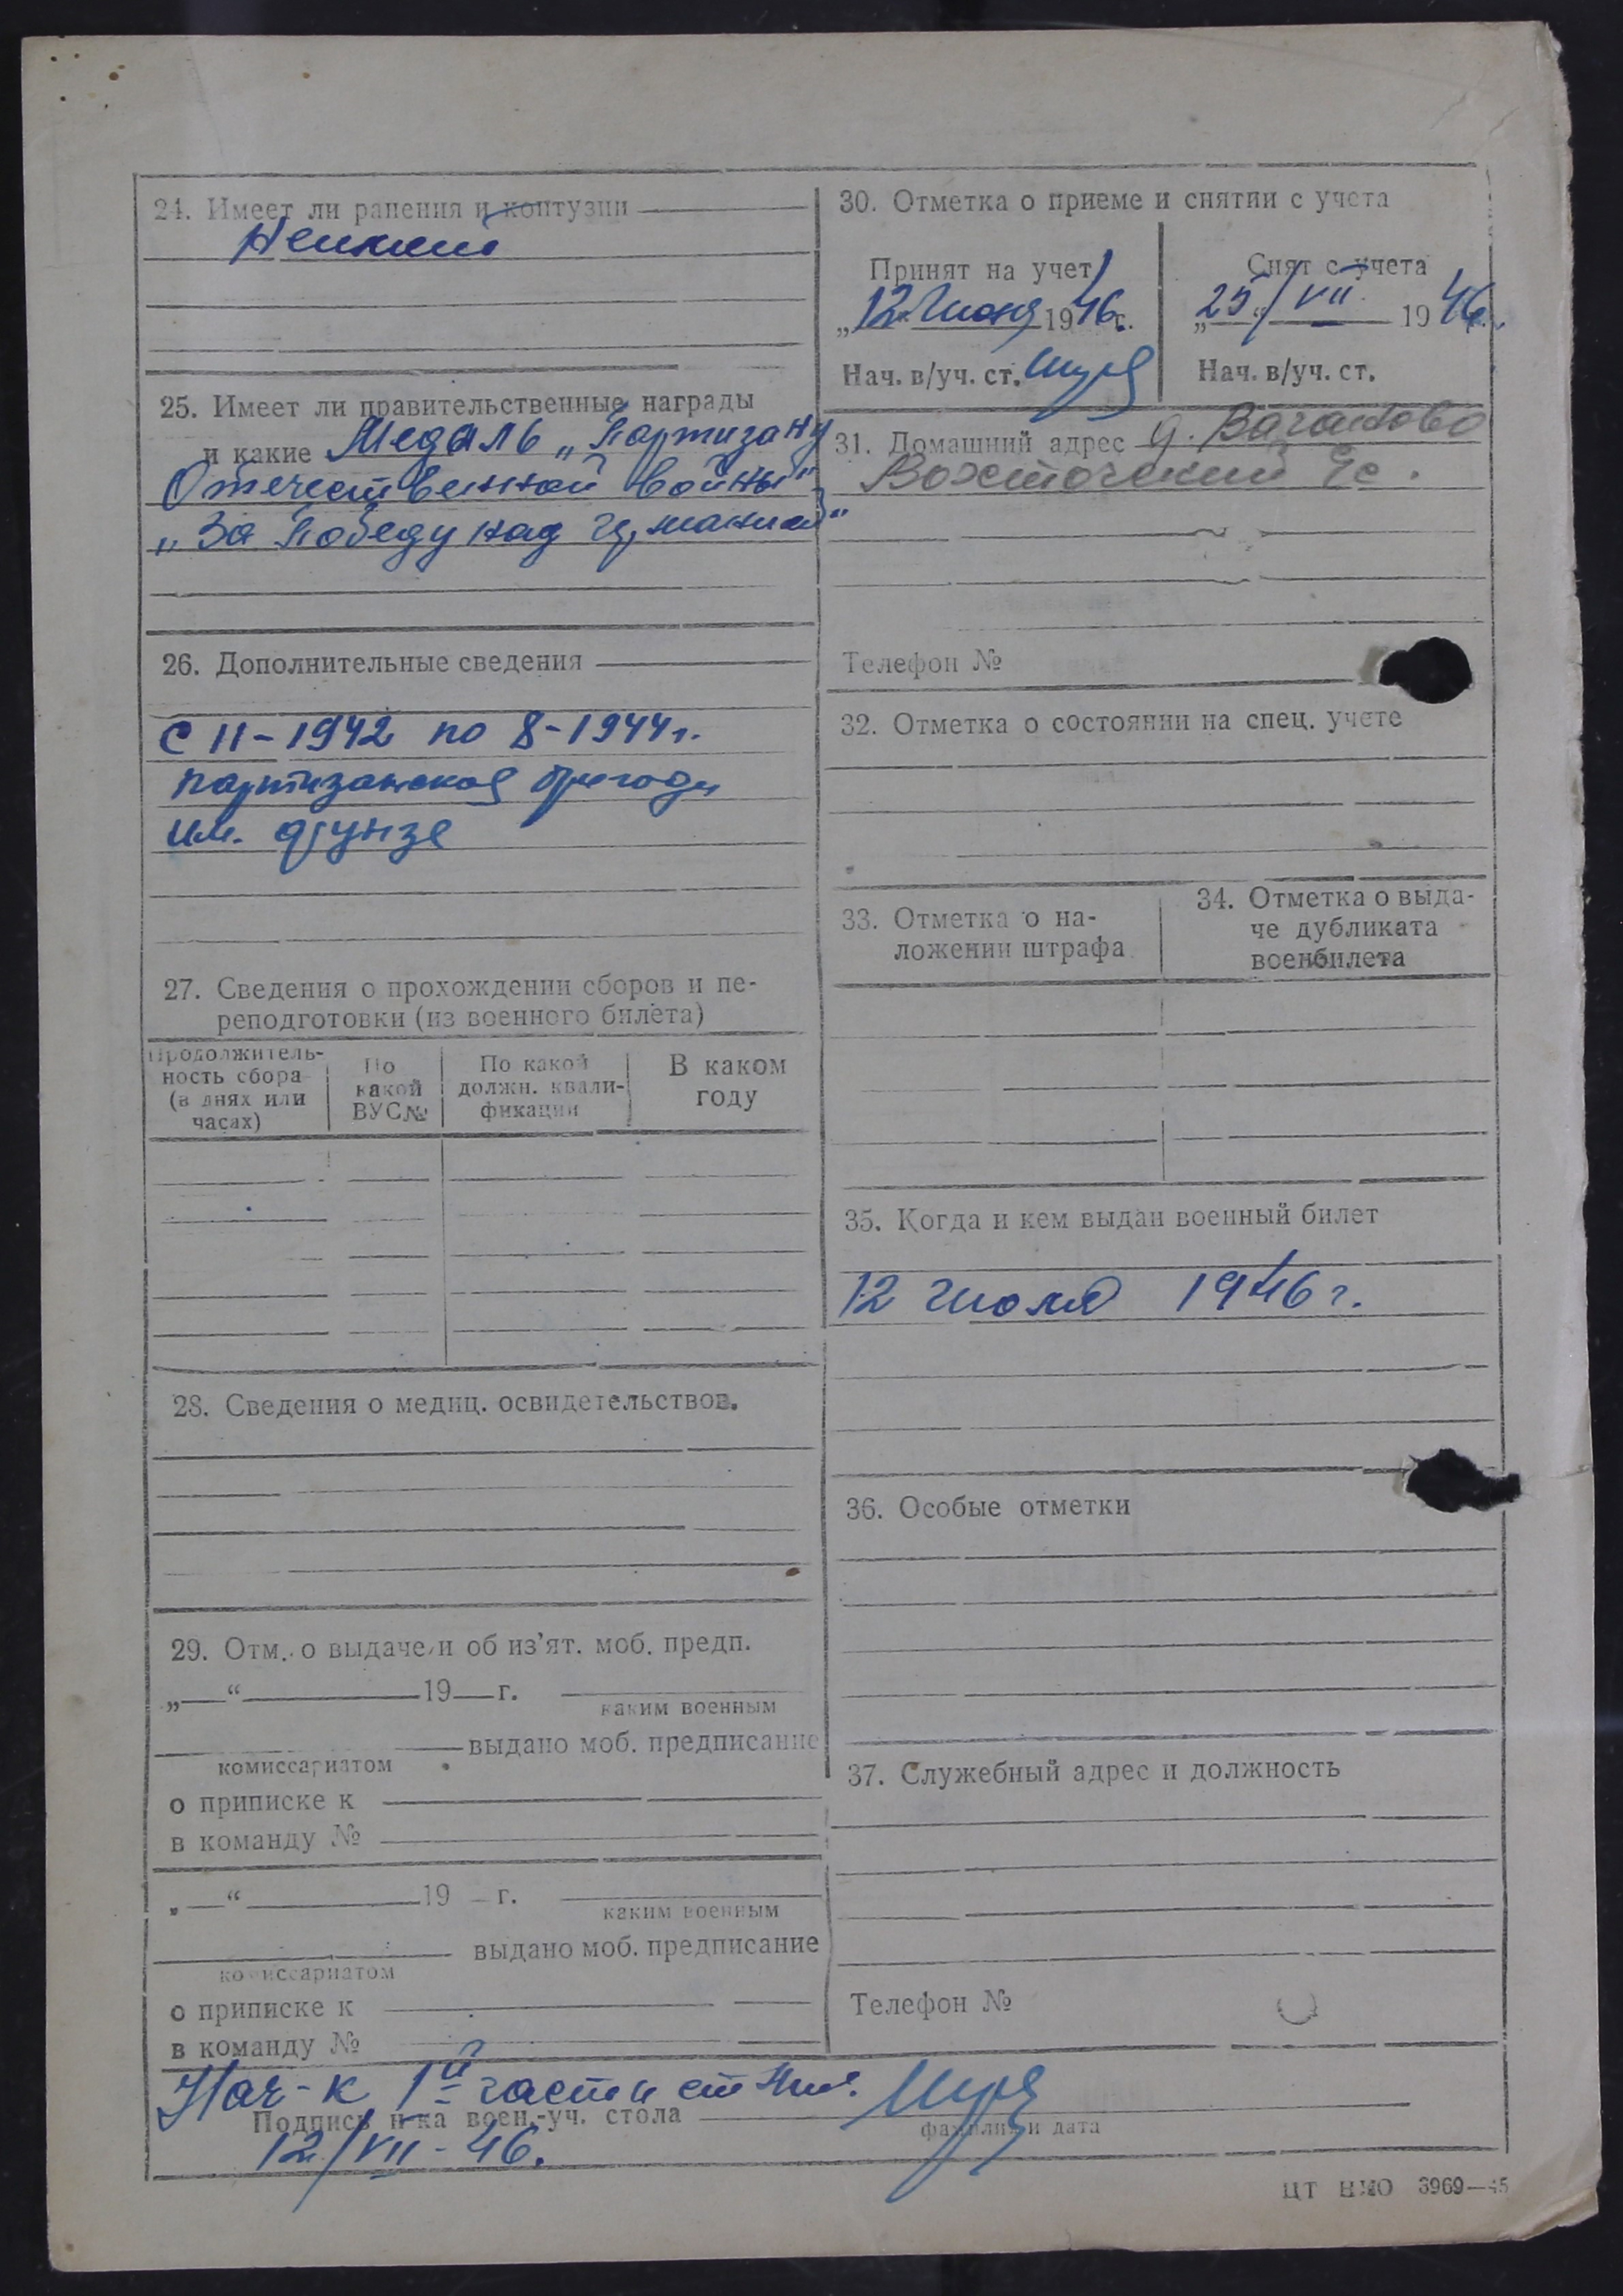 24. Имеет ли ранения и контузии
25. Имеет ли правительственные награды
и какие Медаль „Партизану
Отечественной войны"
„За Победу над Германией"
26. Дополнительные сведения
с 11-1942 по 8-1944г.
партизанская бригады
им. Фрунзе
27. Сведения о прохождении сборов и пе-
реподготовки (из военного билета)
Продолжитель-
ность сбора
(в днях или
часах)
По
какой
ВУС№
По какой
должн. квали-
фикации
В каком
году
28. Сведения о медиц. освидетельствов.
29. Отм. о выдаче и об из'ят. моб. предп.
„—“ 19 г.
каким военным
выдано моб. предписание
комиссариатом
о приписке к
в команду №
„—“ 19 г.
каким военным
выдано моб. предписание
комиссариатом
о приписке к
в команду №
30. Отметка о приеме и снятии с учета
Принят на учет
„12“ 1946г.
Нач. в/уч. ст.
Снят с учета
„25“/VII 1946.
Нач. в/уч. ст.
31. Домашний адрес д.
Телефон №
32. Отметка о состоянии на спец. учете
33. Отметка о на-
ложении штрафа
34. Отметка о выда-
че дубликата
военбилета
35. Когда и кем выдан военный билет
12 июля 1946 г.
36. Особые отметки
37. Служебный адрес и должность
Телефон №
Нач-к 1й части
Подпись н-ка воен.-уч. стола
фамилия и дата
12/VII-46.
ЦТ НКО 3969—45